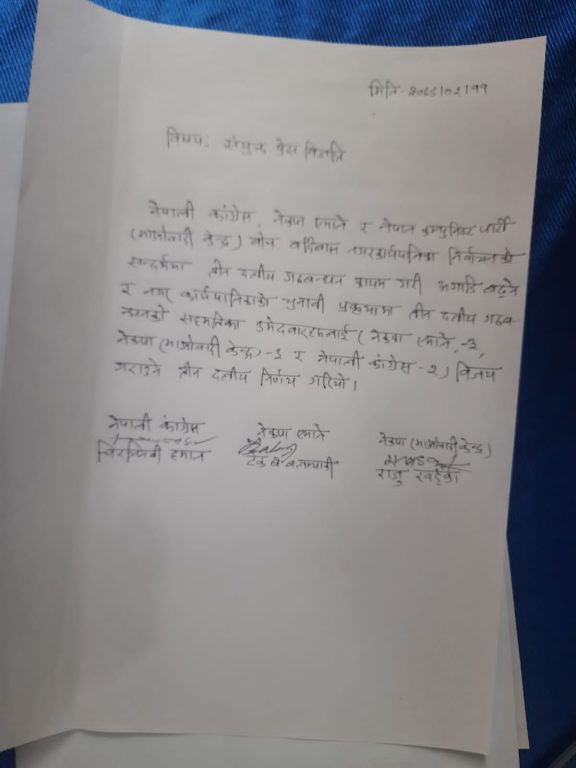 मिति- २०७९।०२।११
विषयः संयुक्त प्रेस विज्ञप्ति
नेपाली कांग्रेस, नेकपा एमाले र नेपाल कम्युनिष्ट पार्टी
(माओवादी केन्द्र) बीच नगरकार्यपालिका निर्वाचनको
सन्दर्भमा तीन दलीय गठबन्धन कायम गरी अगाडि बढ्ने
र नगर कार्यपालिकाको चुनावी प्रकृयामा तीन दलीय गठब-
न्धनको सहमतिका उमेदवारहरुलाई (नेकपा एमाले -३,
नेकपा (माओवादी केन्द्र) -३ र नेपाली कांग्रेस -२) विजय
गराइने तीन दलीय निर्णय गरियो।
नेपाली कांग्रेस नेकपा एमाले नेकपा (माओवादी केन्द्र)
हमाल राजु खड्का